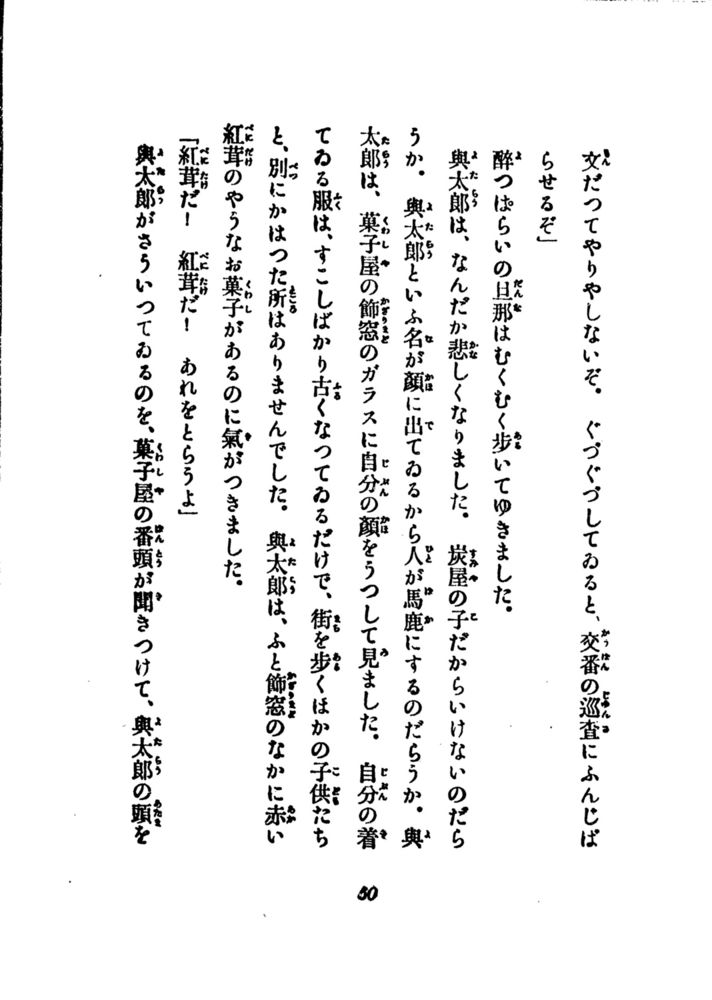 文だつてやりやしないぞ。　ぐづぐづしてゐると、交番の巡査にふんじば
らせるぞ」
醉つぱらいの旦那はむくむく歩いてゆきました。
與太郎は、なんだか悲しくなりました。　炭屋の子だからいけないのだら
うか。　與太郎といふ名が顔に出てゐるから人が馬鹿にするのだらうか。　與
太郎は、菓子屋の飾窓のガラスに自分の顔をうつして見ました。　自分の着
てゐる服は、すこしばかり古くなつてゐるだけで、街を歩くほかの子供たち
と、別にかはつた所はありませんでした。　與太郎は、ふと飾窓のなかに赤い
紅茸のやうなお菓子があるのに氣がつきました。
「紅茸だ！　紅茸だ！　あれをとらうよ」
與太郎がさういつてゐるのを、菓子屋の番頭が聞きつけて、與太郎の頭を
50